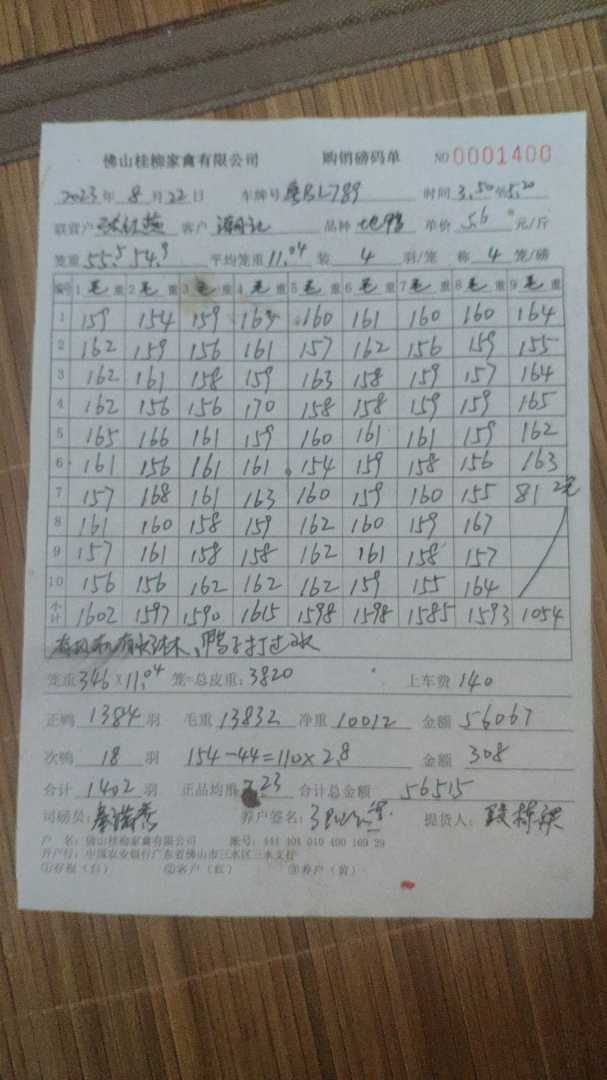 佛山桂柳家禽有限公司 购销磅码单 NO 0001400
2023年 8月 22日 车牌号 L789 时间 3.50至5.20
联营户 客户 品种 地鸭 单价 5.6 元/斤
笼重 55.5 54.9 平均笼重 11.04 装 4 羽/笼 称 4 笼/磅
编号 1 毛重 2 毛重 3 毛重 4 毛重 5 毛重 6 毛重 7 毛重 8 毛重 9 毛重
1 159 154 159 164 160 161 160 160 164
2 162 159 156 161 157 162 156 159 155
3 162 161 158 159 163 158 159 157 164
4 162 156 156 170 158 158 159 159 165
5 165 166 161 159 160 161 161 159 162
6 161 156 161 161 154 159 158 156 163
7 157 168 161 163 160 159 160 155 81 2笼
8 161 160 158 159 162 160 159 167
9 157 161 158 158 162 161 158 157
10 156 156 162 162 162 159 155 164
小计 1602 1597 1590 1615 1598 1598 1585 1593 1054
鸭子打过水
笼重 346×11.04 笼=总皮重:3820 上车费 140
正鸭 1384 羽 毛重 13832 净重 10012 金额 56067
次鸭 18 羽 154-44=110×2.8 金额 308
合计 1402 羽 正品均重 7.23 合计总金额 56515
司磅员: 养户签名: 提货人:
户 名:佛山桂柳家禽有限公司 账号:444 101 010 400 169 29
开户行:中国农业银行广东省佛山市三水区三水支行
①存根(白) ②客户(红) ③养户(黄)